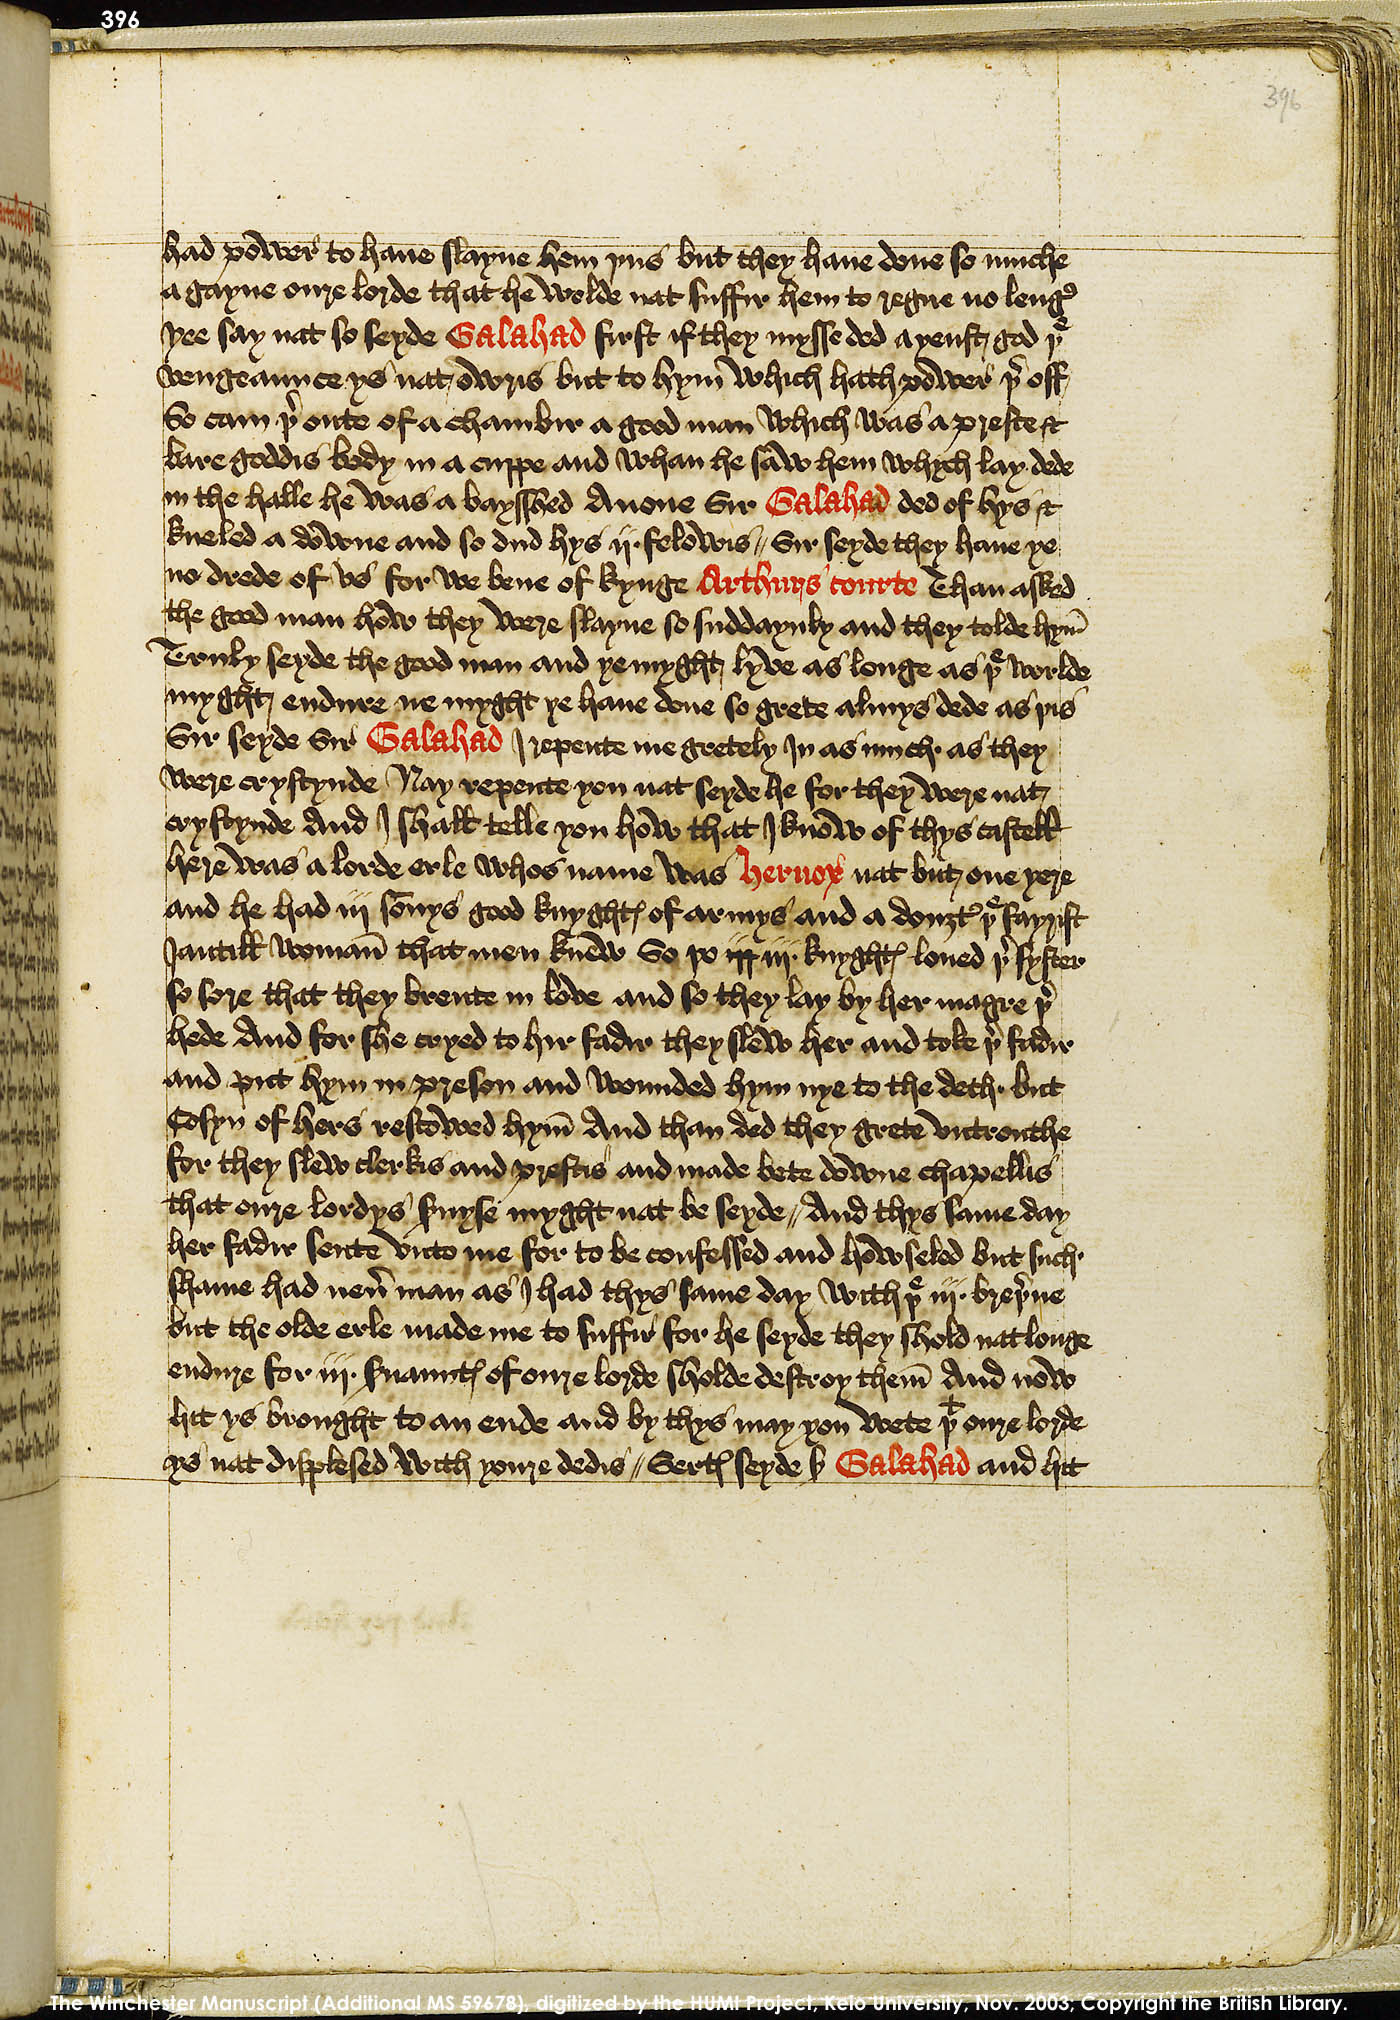 396
396
had power to haue slayne hem þus but they haue done so muche
a gayne oure lorde that he wolde nat suffir hem to regne no lengᵉ
yee say nat so seyde Galahad first if they mysse ded ayenst god þᵉ
vengeaunce ys nat owris but to hym̄ which hath power þʳ off
So cam þʳ oute of a chambir a good man which was a preste &
bare goddis body in a cuppe and whan he saw hem whych lay dede
in the halle he was a baysshed Anone Sir Galahad ded of hys &
kneled a downe and so dud hys ij· felowis // Sir seyde they haue ye
no drede of vs for we bene of kynge Arthurs courte Than asked
the good man how they were slayne so suddaynly and they tolde hym̄
Truly seyde the good man and ye myght lyve as longe as þᵉ worlde
myght endure ne myght ye haue done so grete almys dede as þis
Sir seyde Sir Galahad I repente me gretely In as much· as they
were crystynde Nay repente you nat seyde he for they were nat
crystynde And I shall telle you how that I know of thys castell
here was a lorde erle whos name was hernox nat but one yere
and he had iij sonys good knyghtꝭ of armys and a douztᵉ þᵉ fayrist
Jantill woman̄ that men knew So þo iij iij· knyghtꝭ loued þʳ syster
so sore that they brente in love and so they lay by her magre þʳ
hede And for she cryed to hir fadir they slew her and toke þʳ fadir
and put hym in preson and wounded hym nye to the deth· but
Cosyn of hers rescowed hym̄ And than ded they grete vntrouthe
for they slew clerkis and prestis and made bete downe chapellis
that oure lordys ẜuyse myght nat be seyde // And thys same day
her fadir sente vnto me for to be confessed and howseled but such·
shame had neuʳ man as I had thys same day with þᵉ iij· breþʳne
but the olde erle made me to suffir for he seyde they shold nat longe
endure for iij· ẜuauntꝭ of oure lorde sholde destroy them̄ And now
hit ys brought to an ende and by thys may you wete þᵗ oure lorde
ys nat displesed with youre dedis // Sertꝭ seyde ẜ Galahad and hit
The Winchester Manuscript (Additional MS 59678), digitized by the HUMI Project, Keio University, Nov. 2003, Copyright the British Library.